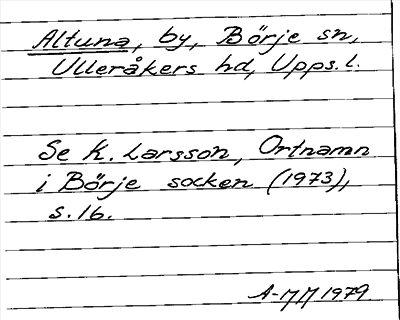 Altuna, by, Börje sn,
Ulleråkers hd, Upps. l.
Se K. Larsson, Ortnamn
i Börje socken (1973),
s. 16.
1979